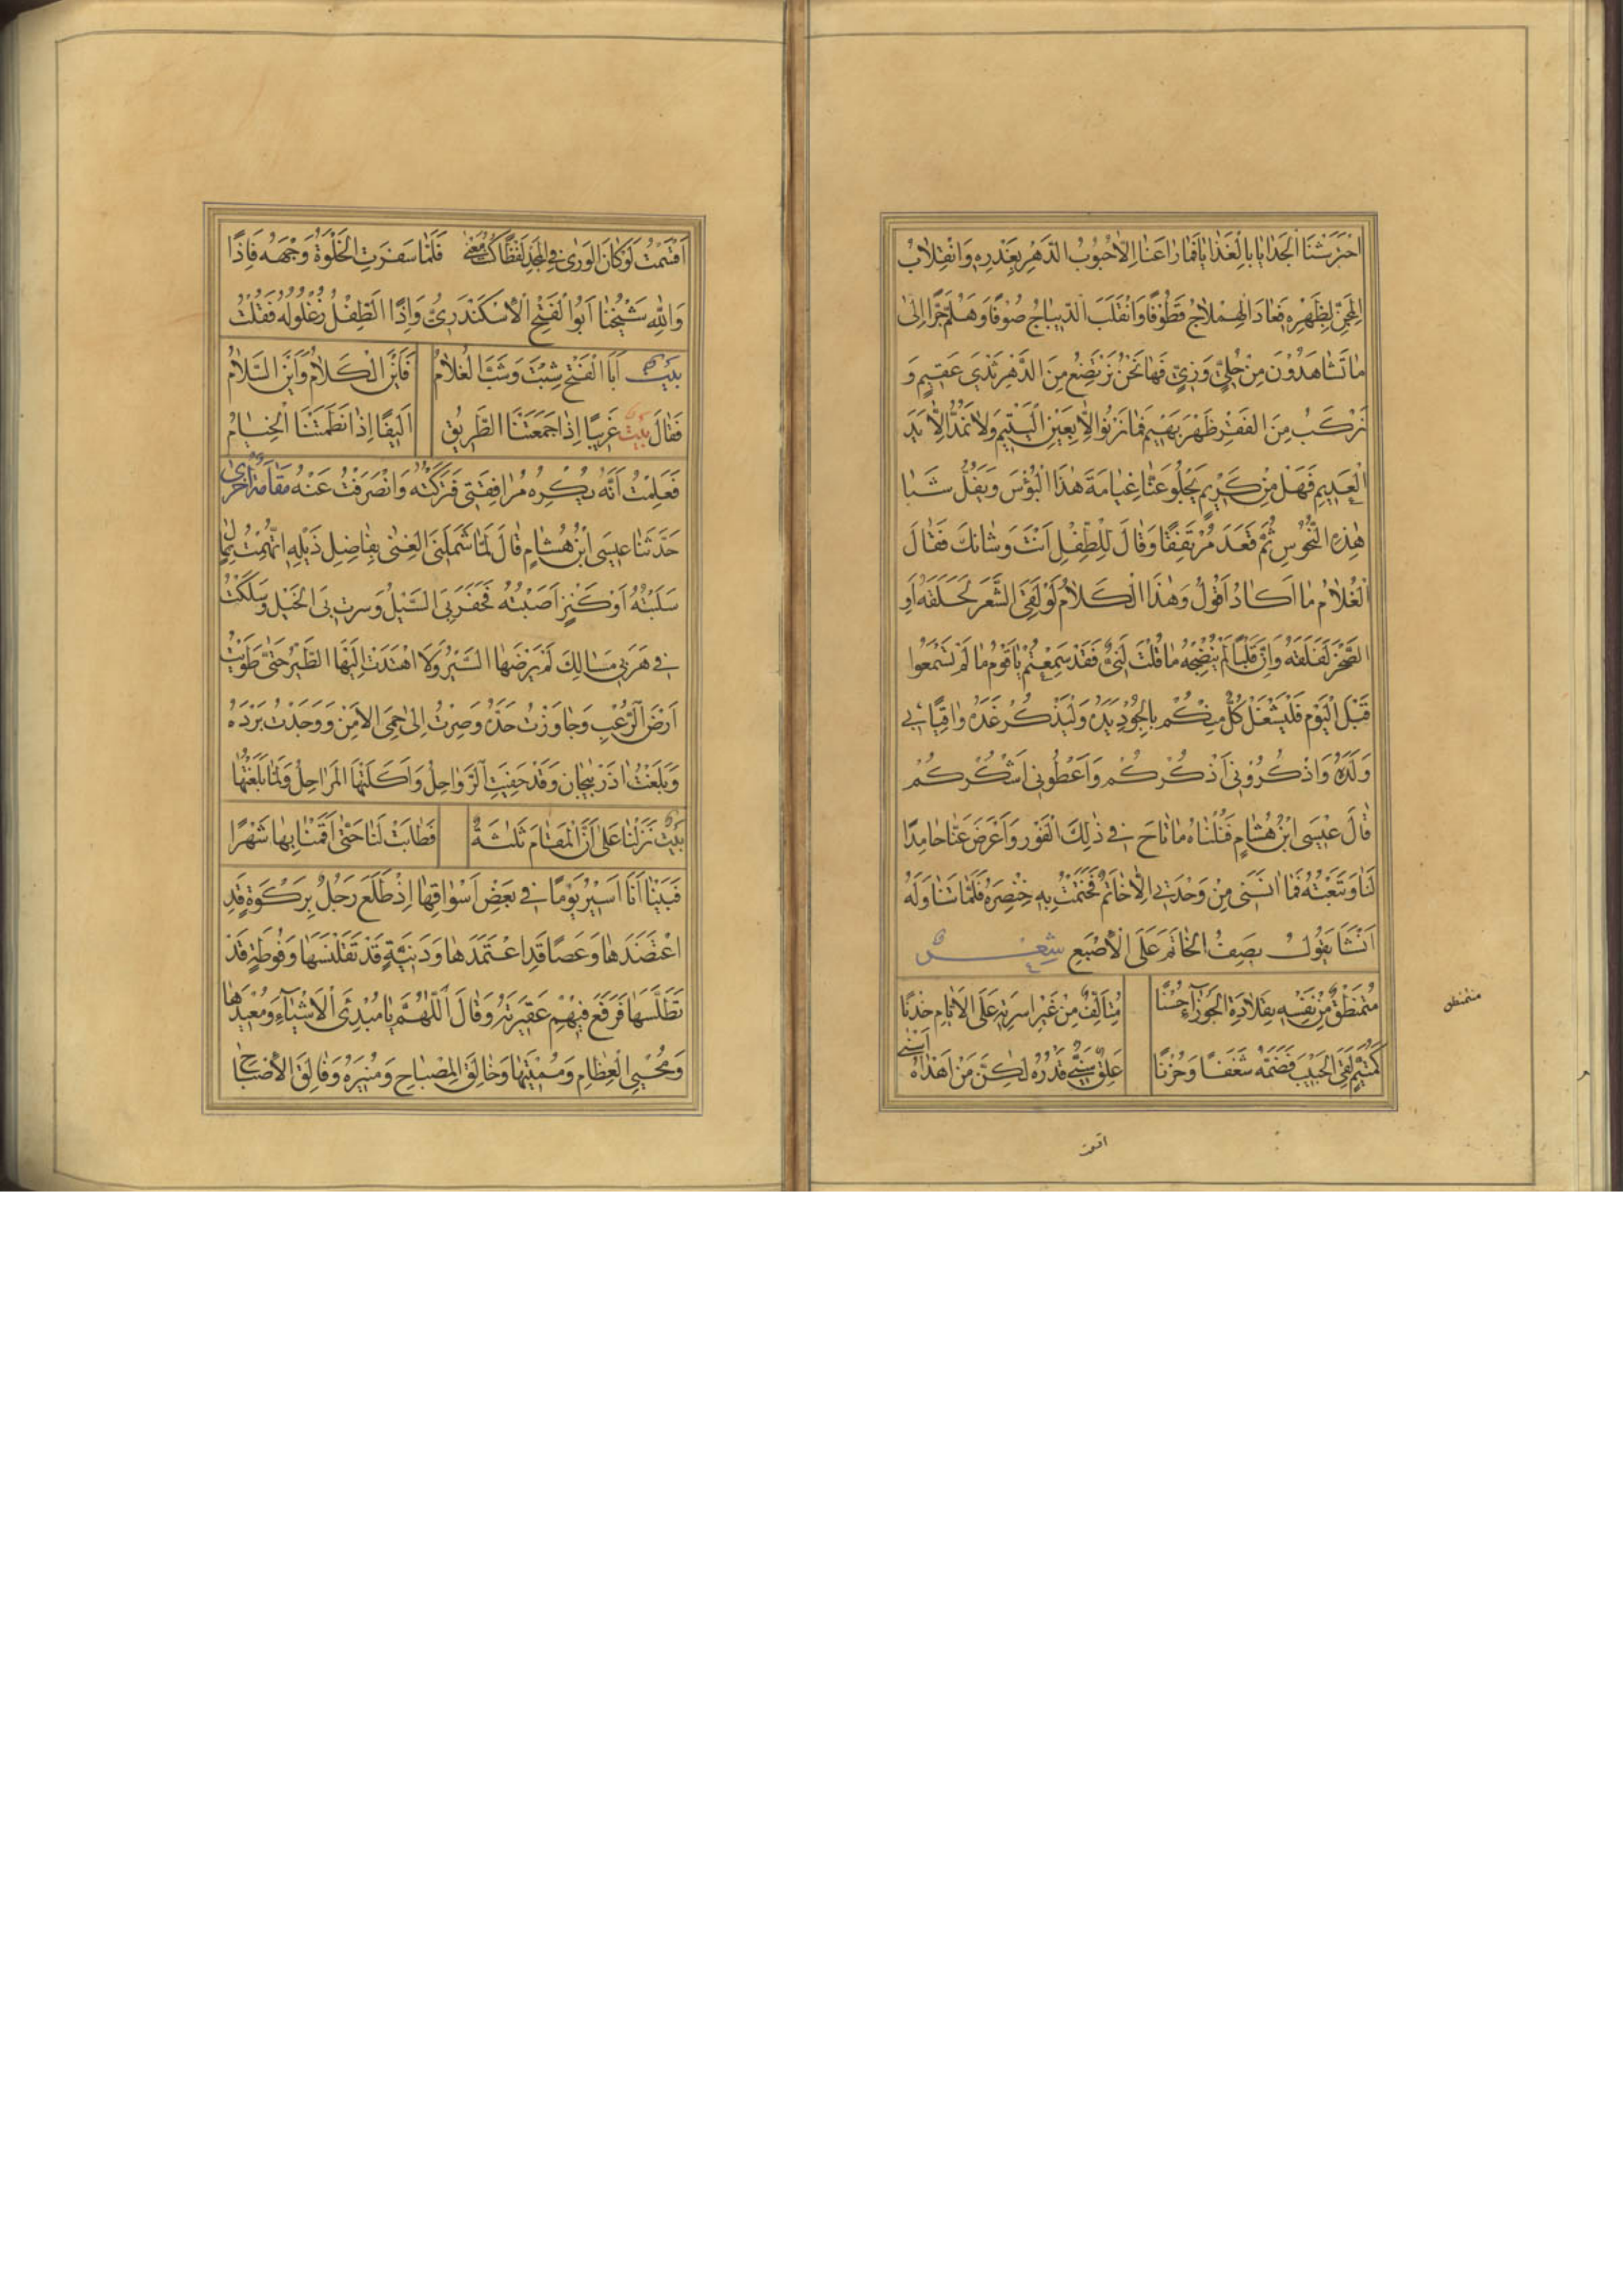 اخْتَرَشْنَا الْجَدَايَا بِالْغَدَايَا فَمَا رَاعَنَا اِلَّا هُبُوبُ الدَّهْرِ بِغَدْرِهِ وَانْقِلَابُ
الْمِجَنِّ لِظَهْرِهِ فَعَادَ الْهِمْلَاجُ قَطُوفًا وَانْقَلَبَ الدِّيبَاجُ صُوفًا وَهَلُمَّ جَرًّا اِلَىٰ
مَا تُشَاهِدُونَ مِنْ حُلِيٍّ وَزِيٍّ فَهَا نَحْنُ نَرْتَضِعُ مِنَ الدَّهْرِ ثَدْيَ عَقِيمٍ وَ
نَرْكَبُ مِنَ الْفَقْرِ ظَهْرَ بَهِيمٍ فَمَا نَرْنُوا اِلَّا بِعَيْنِ الْيَتِيمِ وَلَا نَمُدُّ اِلَّا يَدَ
الْعَدِيمِ فَهَلْ مِنْ كَرِيمٍ يَجْلُو عَنَّا غَيَامَةَ هٰذَا الْبُؤْسَ وَيَفُلُّ شَبَا
هٰذِهِ النُّحُوسِ ثُمَّ قَعَدَ مُرْتَفِقًا وَقَالَ لِلطِّفْلِ اَنْتَ وَشَانَكَ فَقَالَ
الْغُلَامُ مَا اَكَادُ اَقُولُ وَهٰذَا الْكَلَامُ لَوْ لَقِيَ الشَّعَرَ لَحَلَقَهُ اَوِ
الصَّخْرَ لَفَلَقَهُ وَاِنَّ قَلْبًا لَمْ يُنْضِجْهُ مَا قُلْتَ لَنِيٌّ فَقَدْ سَمِعْتُمْ يَا قَوْمُ مَا لَمْ تَسْمَعُوا
قَبْلَ الْيَوْمِ فَلْيَشْغَلْ كُلٌّ مِنْكُمْ بِالْجُودِ يَدَهُ وَلْيَذْكُرْ غَدَهُ وَاقِيًا بِي
وَلَدَهُ وَاذْكُرُونِي اَذْكُرْكُمْ وَاَعْطُونِي اَشْكُرْكُمْ
قَالَ عِيسَى ابْنُ هِشَامٍ فَنُلْنَاهُ مَا تَاحَ فِي ذٰلِكَ الْفَوْرِ وَاَعْرَضَ عَنَّا حَامِدًا
لَنَا وَتَبِعْتُهُ فَمَا اٰنَسَنِي مِنْ وَحْدَتِي اِلَّا خَاتَمٌ خَتَمْتُ بِهِ خِنْصِرَهُ فَلَمَّا تَنَاوَلَهُ
اَنْشَا يَقُولُ يَصِفُ الْخَاتَمَ عَلَى الْاَصْبَعِ شِعْر
مُتَمَنْطِقٌ مِنْ نَفْسِهِ بِقِلَادَةِ الْجَوْزَآءِ حُسْنًا مُتَاَلِّفٌ مِنْ غَيْرِ اُسْرَتِهِ عَلَى الْاَيَّامِ خِدْنًا
كَمُتَيَّمٍ لَقِيَ الْحَبِيبَ فَضَمَّهُ شَغَفًا وَحُزْنًا عِلْقٌ سَنِيٌّ قَدْرُهُ لٰكِنَّ مَنْ اَهْدَاهُ اَسْنىٰ
متمنطق
اقسمت
اَقْسَمْتُ لَوْ كَانَ الْوَرٰى فِي الْمَجْدِ لَفْظًا كُنْتَ مَعْنىٰ فَلَمَّا سَفَرَتِ الْخَلْوَةُ وَجْهَهُ فَاِذَا
وَاللهِ شَيْخُنَا اَبُو الْفَتْحِ الْاِسْكَنْدَرِيُّ وَاِذَا الطِّفْلُ زُغْلُولُهُ فَقُلْتُ
بيت اَبَا الْفَتْحِ شِبْتَ وَشَبَّ الْغُلَامُ فَاَيْنَ الْكَلَامُ وَاَيْنَ السَّلَامُ
فَقَالَ بيت غَرِيبًا اِذَا جَمَعَتْنَا الطَّرِيقُ اَلِيفًا اِذَا نَظَمَتْنَا الْخِيَامُ
فَعَلِمْتُ اَنَّهُ يُكْرِهُ مُرَافَقَتِي فَتَرَكْتُهُ وَانْصَرَفْتُ عَنْهُ مَقَامَةٌ اُخْرٰى
حَدَّثَنَا عِيسَى ابْنُ هِشَامٍ قَالَ لَمَّا شَمَلَنِيَ الْغِنىٰ بِفَاضِلِ ذَيْلِهِ اتُّهِمْتُ بِمَالٍ
سَلَبْتُهُ اَوْ كَنْزٍ اَصَبْتُهُ فَحَفَزَ بِيَ السَّيْلُ وَسَرَتْ بِيَ الْخَيْلُ وَسَلَكْتُ
فِي هَرَبِي مَسَالِكَ لَمْ يَرُضْهَا السَّيْرُ وَلَا اهْتَدَتْ اِلَيْهَا الطَّيْرُ حَتّٰى طَوَيْتُ
اَرْضَ الرُّعْبِ وَجَاوَزْتُ حَدَّهُ وَصِرْتُ اِلىٰ حِمَى الْاَمْنِ وَوَجَدْتُ بَرْدَهُ
وَبَلَغْتُ اذَرْبِيجَانَ وَقَدْ حَفِيَتِ الرَّوَاحِلُ وَاَكَلَتْهَا الْمَرَاحِلُ وَلَمَّا بَلَغْتُهَا
بيت نَزَلْنَا عَلىٰ اَنَّ الْمَقَامَ ثَلٰثَةٌ فَطَابَتْ لَنَا حَتّٰى اَقَمْنَا بِهَا شَهْرًا
فَبَيْنَا اَنَا اَسِيرُ يَوْمًا فِي بَعْضِ اَسْوَاقِهَا اِذْ طَلَعَ رَجُلٌ بِرَكْوَةٍ قَدِ
اعْتَضَدَهَا وَعَصًا قَدِ اعْتَمَدَهَا وَدَنِيَّةٍ قَدْ تَقَلْنَسَهَا وَفُوطَةٍ قَدْ
تَطَلَّسَهَا فَرَفَعَ فِيهِمْ عَقِيرَتَهُ وَقَالَ اَللّٰهُمَّ يَا مُبْدِئَ الْاَشْيَآءِ وَمُعِيدَهَا
وَمُحْيِيَ الْعِظَامِ وَمُمِيتَهَا وَخَالِقَ الْمِصْبَاحِ وَمُنِيرَهُ وَفَالِقَ الْاِصْبَاحِ